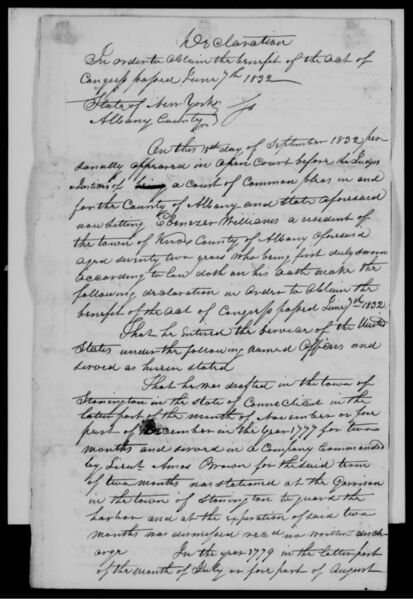 Declaration
In order to Obtain the benefit of the act of
Congress passed June 7th 1832
State of New York
Albany County } ss
On this 18th day of September 1832 per
sonally appeared in Open Court before the Judges
Justices of a Court of Common pleas in and
for the County of Albany and State aforesaid
now Sitting Ebenezer Williams a resident of
the town of Knox County of Albany aforesaid
aged seventy two years who being first duly sworn
according to law doth on his oath make the
following declaration in Order to Obtain the
benefit of the Act of Congress passed June 7th 1832
That he Entered the Service of the United
States under the following named Officers and
served as herein stated
That he was drafted in the town of
Stonington in the state of Connecticut in the
latter part of the month of November or fore
part of December in the Year 1777 for two
months and served in a Company Commanded
by Lieut Amos Brown for the said term
of two months was stationed at the Garrison
in the town of Stonington to guard the
harbor and at the expiration of said two
months was dismissed recd no written disch
arge In the year 1779 in the latter part
of the month of July or fore part of August